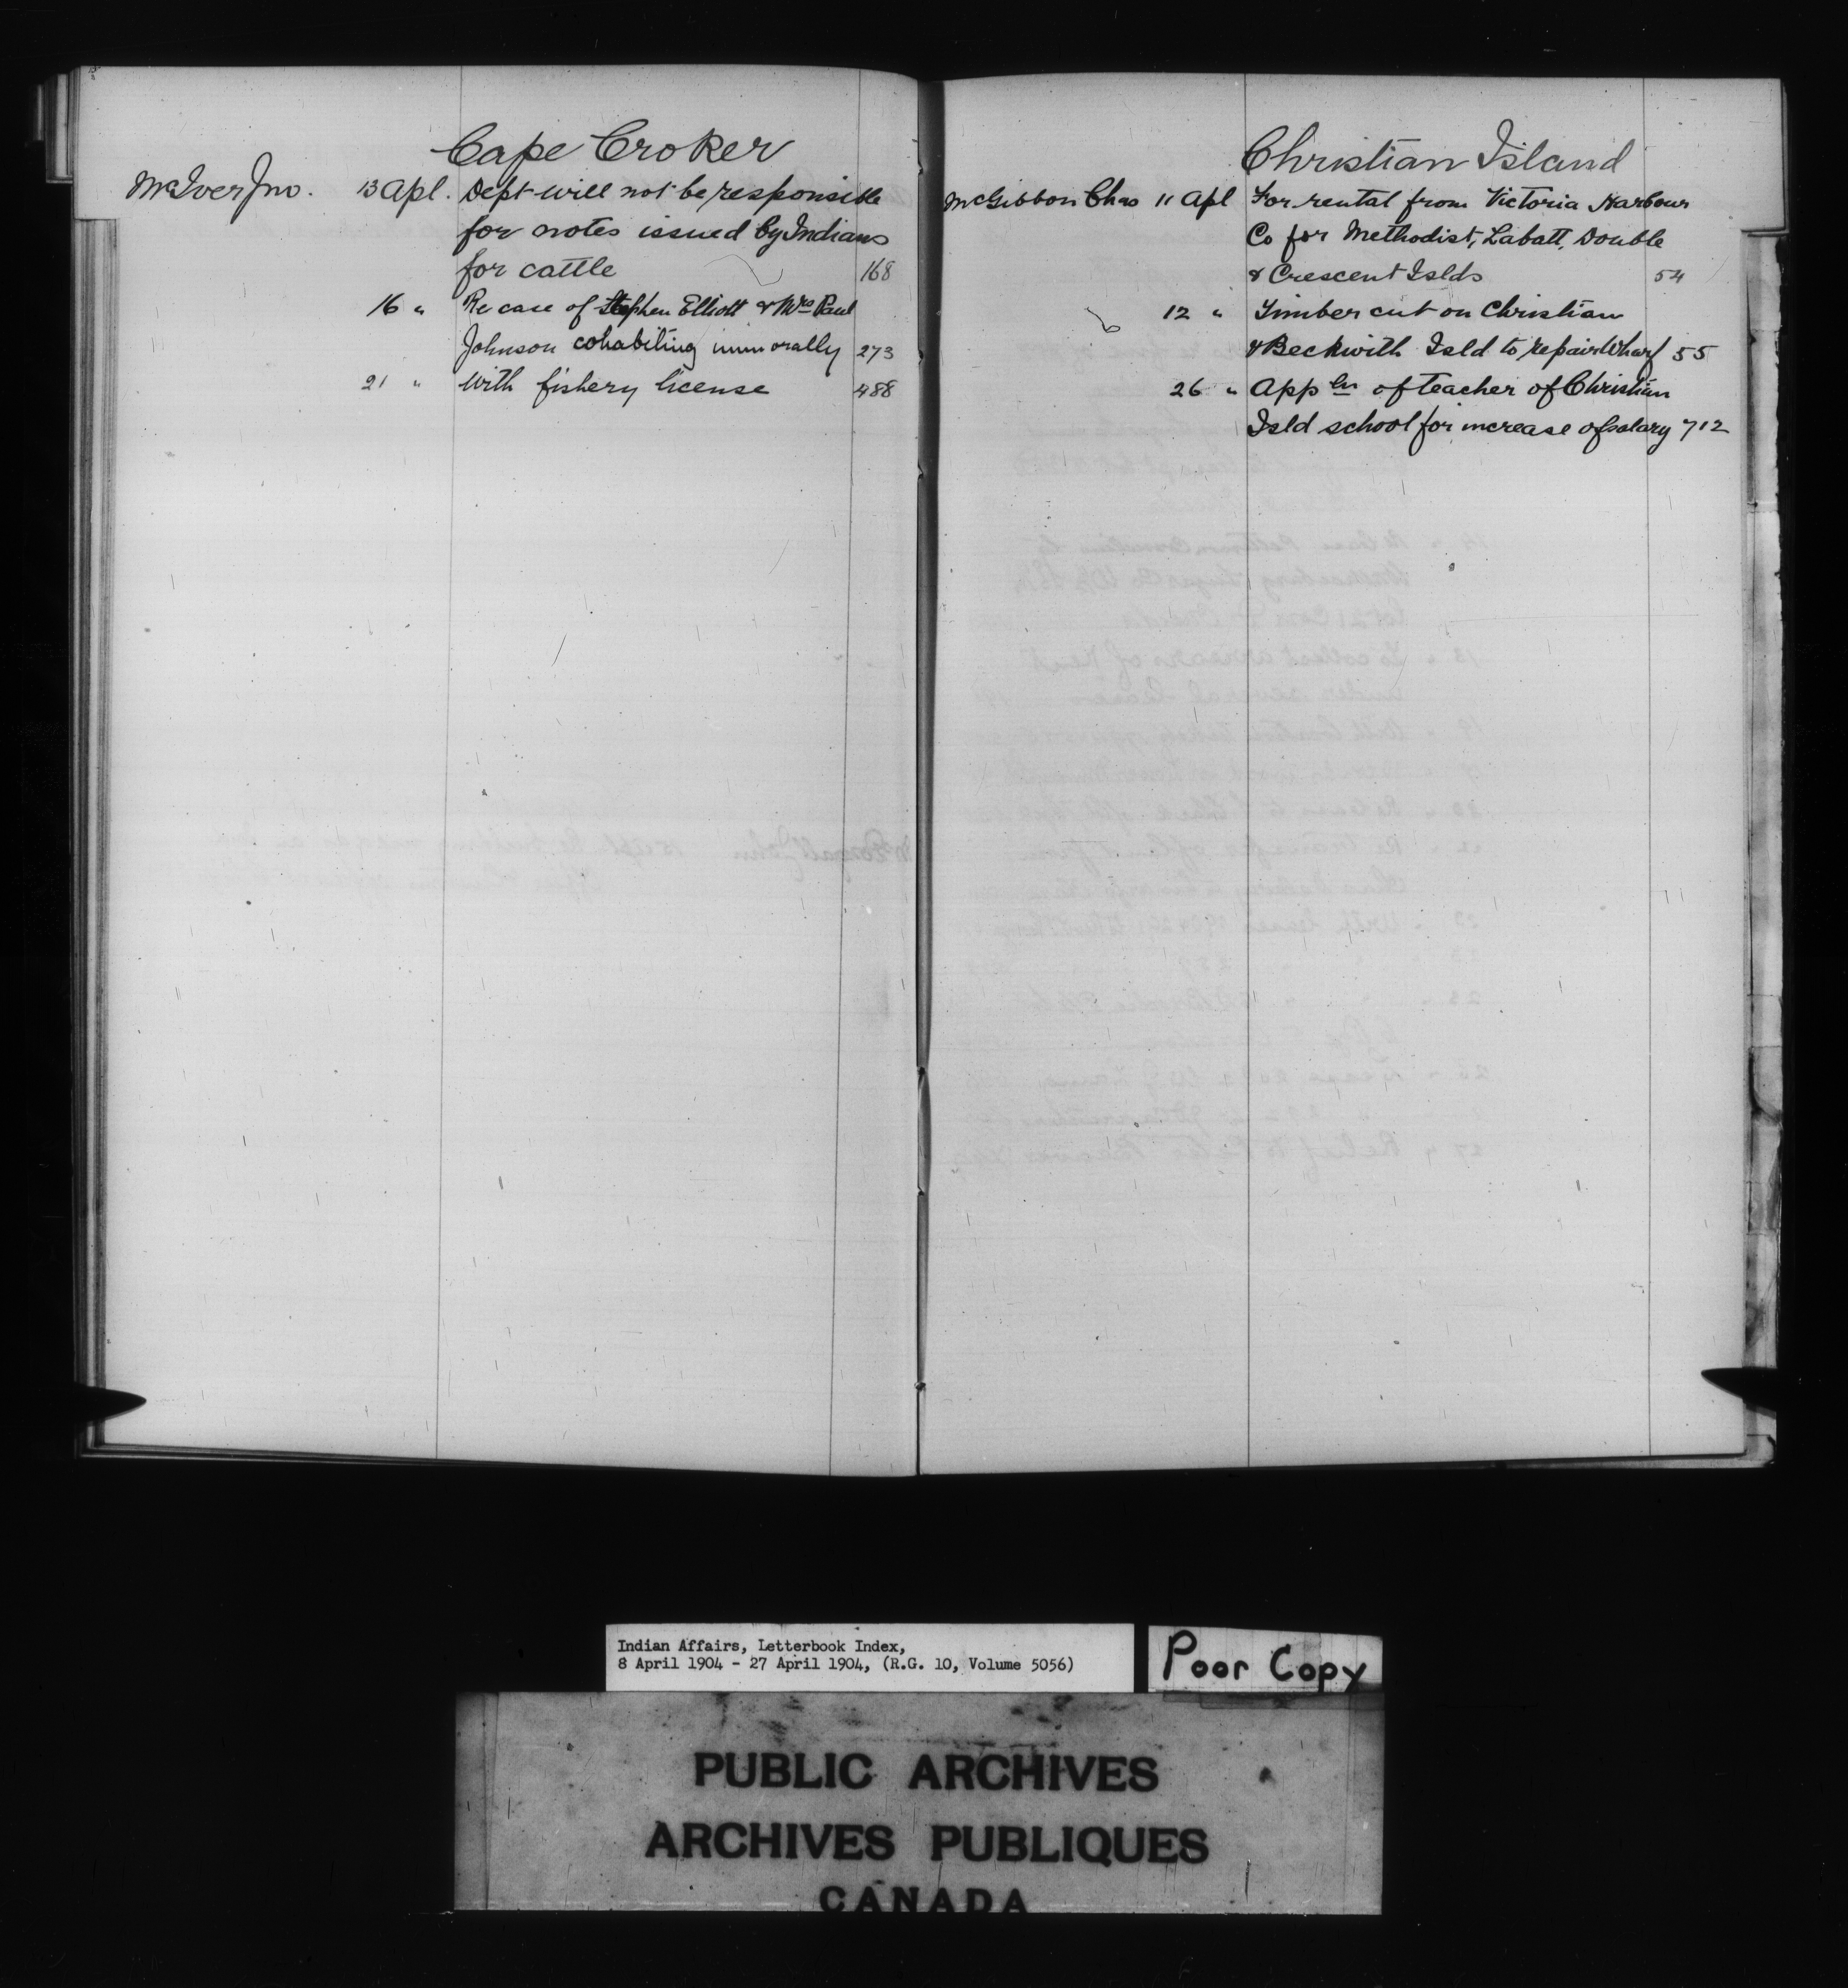 Cape Croker
McIver Jno. 13 Apl. Dept will not be responsible
for notes issued by Indians
for cattle 168
16 " Re case of Stephen Elliott & Mrs Paul
Johnson cohabiting immorally 273
21 " With fishery license 488
Christian Island
McGibbon Chas 11 Apl For rental from Victoria Harbour
Co for Methodist, Labatt, Double
& Crescent Islds 54
12 " Timber cut on Christian
& Beckwith Isld to repair Wharf 55
26 " Appln of teacher of Christian
Isld school for increase of salary 712
Indian Affairs, Letterbook Index,
8 April 1904 - 27 April 1904, (R.G. 10, Volume 5056)
Poor Copy
PUBLIC ARCHIVES
ARCHIVES PUBLIQUES
CANADA